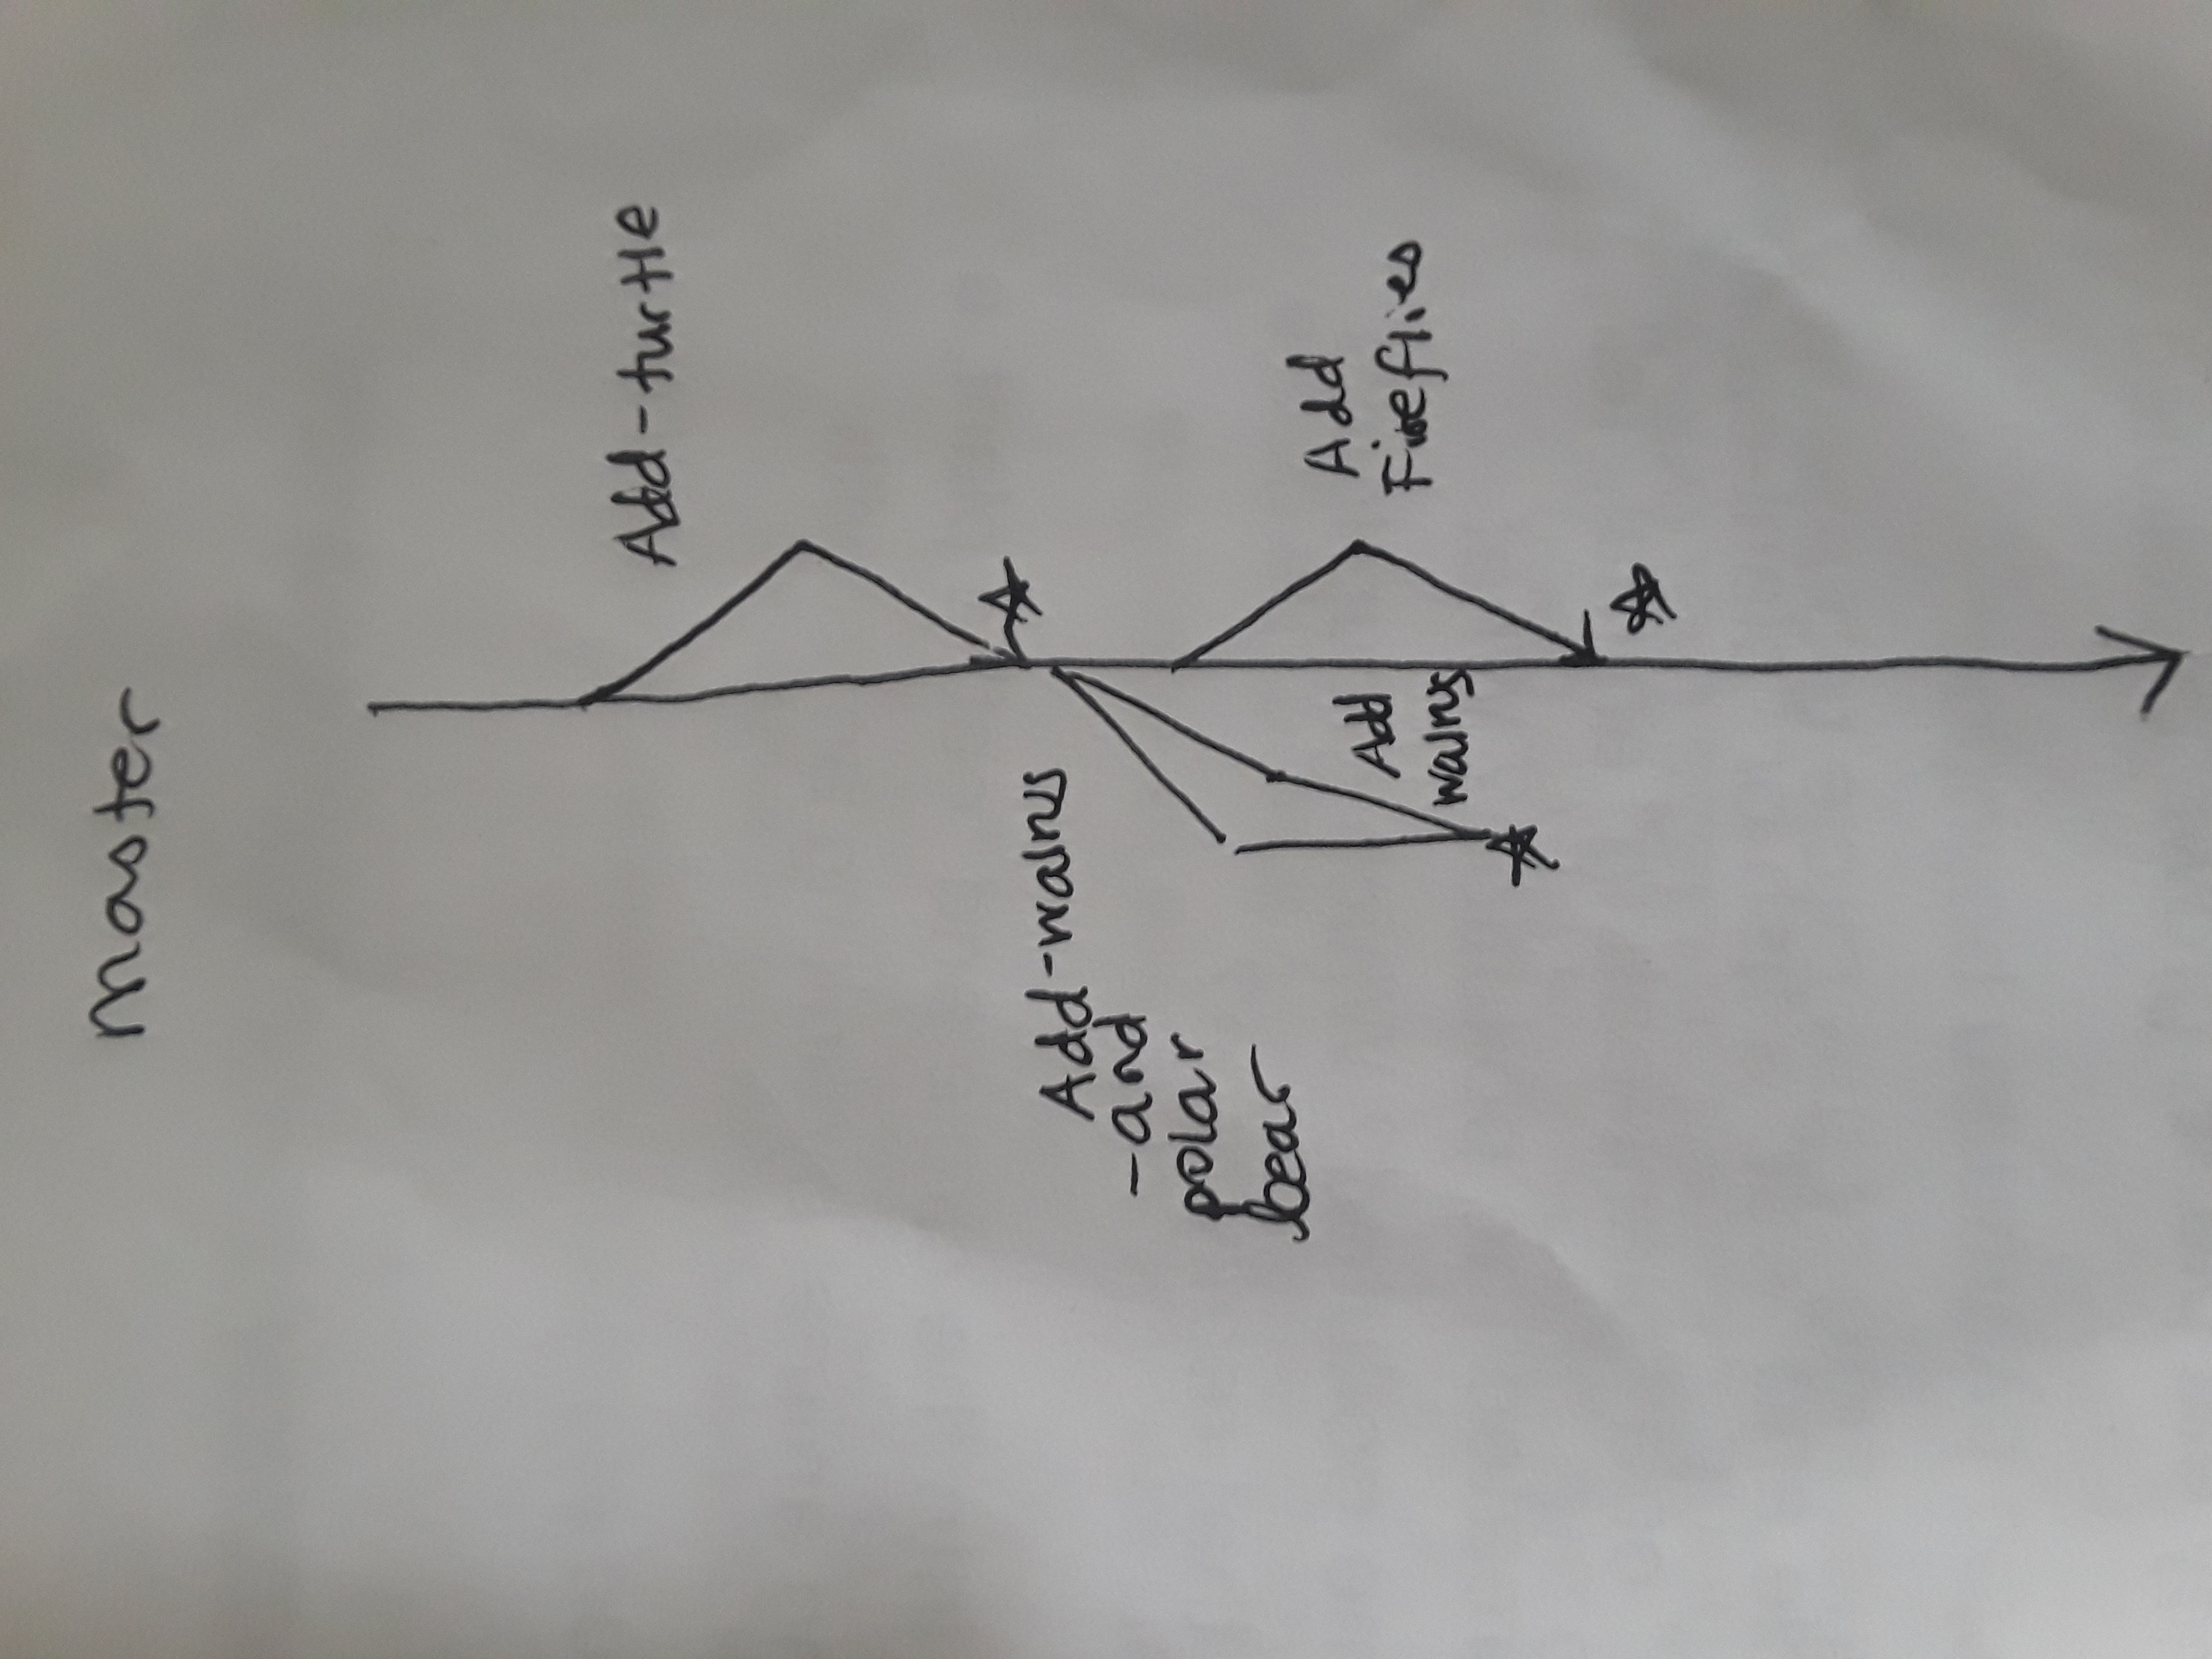 master
Add-turtle
Add-walrus
-and
polar
bear
Add
walrus
Add
Fireflies